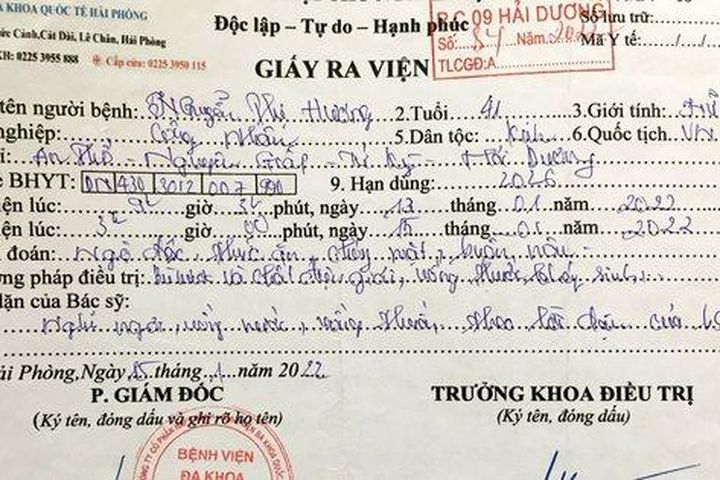 ĐA KHOA QUỐC TẾ HẢI PHÒNG
Độc lập – Tự do – Hạnh phúc
P.C 09 HẢI DƯƠNG
Số: 34 Năm 20
TLCGĐ:A
Số lưu trữ:
Mã Y tế: / /
ức Cảnh, Cát Dài, Lê Chân, Hải Phòng
KH: 0225 3955 888 Cấp cứu: 0225 3950 115
GIẤY RA VIỆN
tên người bệnh: Nguyễn Thị Hương 2.Tuổi: 41 3.Giới tính: Nữ
nghiệp: Công Nhân 5.Dân tộc: Kinh 6.Quốc tịch VN
i: An Thổ - Nguyên Giáp - Tứ Kỳ - Hải Dương
BHYT: DN 430 3012 007 990 9. Hạn dùng: 2026
iện lúc: giờ phút, ngày 13 tháng 01 năm 2022
iện lúc: giờ 00 phút, ngày 15 tháng 01 năm 2022
đoán: Ngộ độc thức ăn, buồn nôn
ơng pháp điều trị: Bù nước và chất điện giải, uống thuốc kháng sinh
dặn của Bác sỹ:
Nghỉ ngơi, uống nước, uống thuốc theo của
ải Phòng, Ngày 15 tháng 1 năm 2022
P. GIÁM ĐỐC TRƯỞNG KHOA ĐIỀU TRỊ
(Ký tên, đóng dấu và ghi rõ họ tên) (Ký tên, đóng dấu)
BỆNH VIỆN
ĐA KHOA